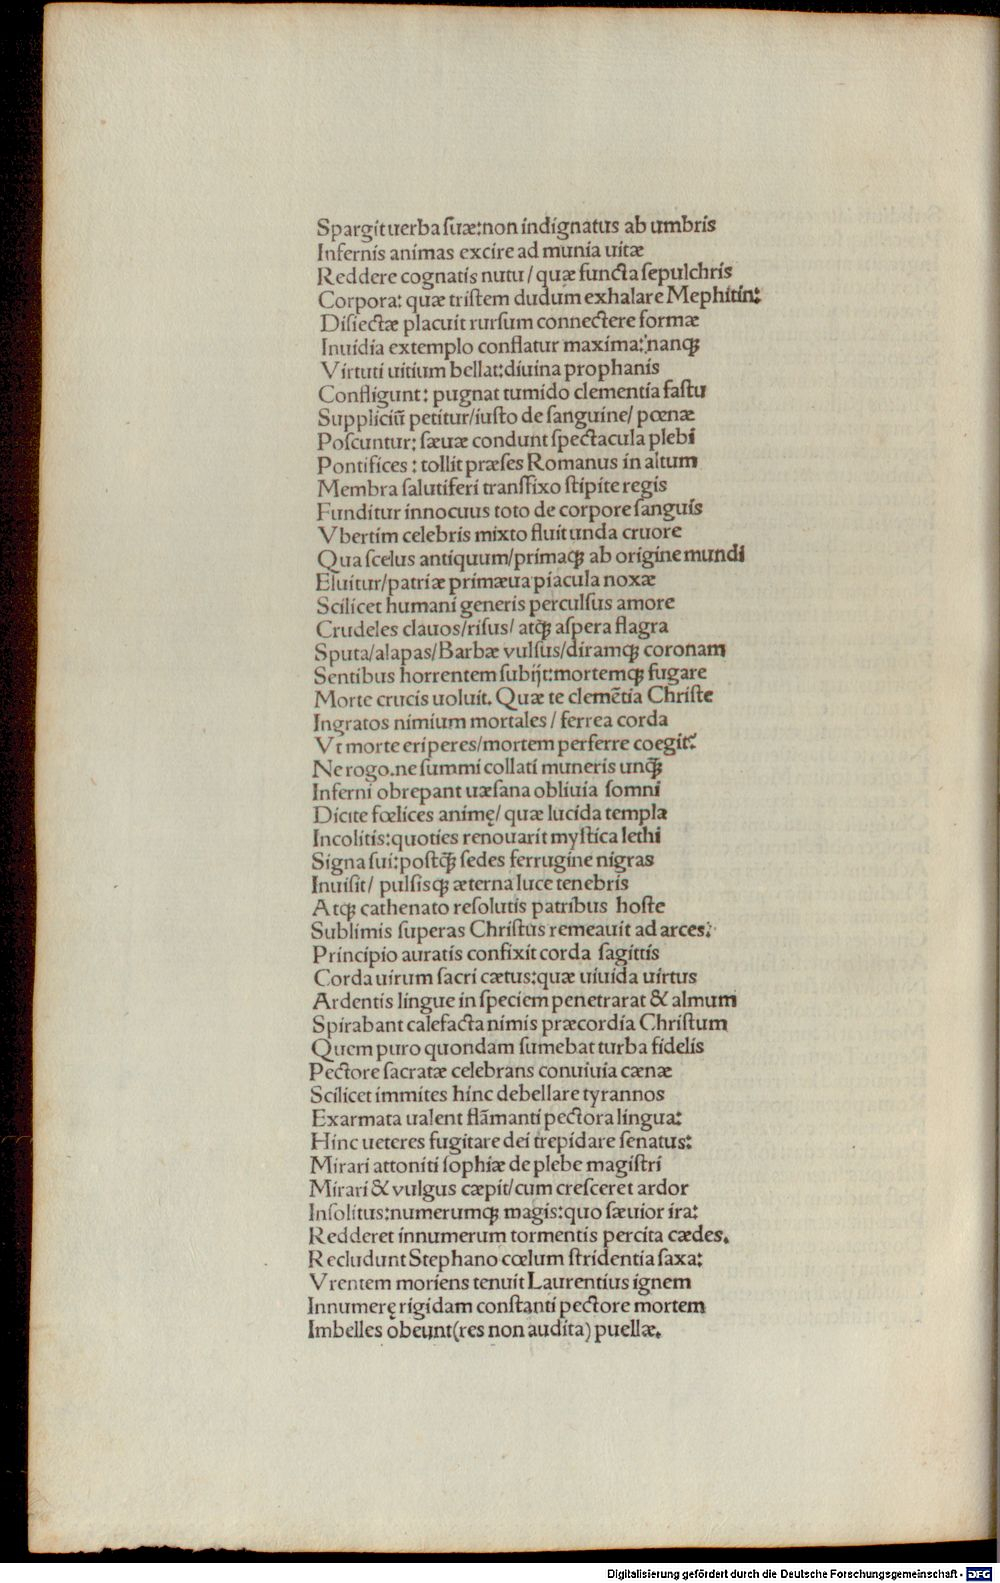 Spargit uerba ſuæ: non indignatus ab umbris
Infernis animas excire ad munia uitæ
Reddere cognatis nutu / quæ functa ſepulchris
Corpora: quæ triſtem dudum exhalare Mephitin:
Diſiectæ placuit rurſum connectere formæ
Inuidia extemplo conflatur maxima: nanqꝫ
Virtuti uitium bellat: diuina prophanis
Confligunt: pugnat tumido clementia faſtu
Suppliciū petitur/iuſto de ſanguine/ pœnæ
Poſcuntur: ſæuæ condunt ſpectacula plebi
Pontifices: tollit præſes Romanus in altum
Membra ſalutiferi tranſfixo ſtipite regis
Funditur innocuus toto de corpore ſanguis
Vbertim celebris mixto fluit unda cruore
Qua ſcelus antiquum/primaqꝫ ab origine mundi
Eluitur/patriæ primæua piacula noxæ
Scilicet humani generis perculſus amore
Crudeles clauos/riſus/ atqꝫ aſpera flagra
Sputa/alapas/Barbæ vulſus/diramqꝫ coronam
Sentibus horrentem ſubijt: mortemqꝫ fugare
Morte crucis uoluit. Quæ te clemētia Chriſte
Ingratos nimium mortales / ferrea corda
Vt morte eriperes/mortem perferre coegit?
Ne rogo. ne ſummi collati muneris unq̄ꝫ
Inferni obrepant uæſana obliuia ſomni
Dicite fœlices animę/ quæ lucida templa
Incolitis: quoties renouarit myſtica lethi
Signa ſui: poſtq̄ꝫ ſedes ferrugine nigras
Inuiſit/ pulſisqꝫ æterna luce tenebris
Atqꝫ cathenato reſolutis patribus hoſte
Sublimis ſuperas Chriſtus remeauit ad arces:
Principio auratis confixit corda ſagittis
Corda uirum ſacri cætus: quæ uiuida uirtus
Ardentis lingue in ſpeciem penetrarat & almum
Spirabant calefacta nimis præcordia Chriſtum
Quem puro quondam ſumebat turba fidelis
Pectore ſacratæ celebrans conuiuia cænæ
Scilicet immites hinc debellare tyrannos
Exarmata ualent flāmanti pectora lingua:
Hinc ueteres fugitare dei trepidare ſenatus:
Mirari attoniti ſophiæ de plebe magiſtri
Mirari & vulgus cæpit/cum creſceret ardor
Inſolitus: numerumqꝫ magis: quo ſæuior ira:
Redderet innumerum tormentis percita cædes.
Recludunt Stephano cœlum ſtridentia ſaxa:
Vrentem moriens tenuit Laurentius ignem
Innumerę rigidam conſtanti pectore mortem
Imbelles obeunt(res non audita) puellæ.
Digitalisierung gefördert durch die Deutsche Forschungsgemeinschaft - DFG